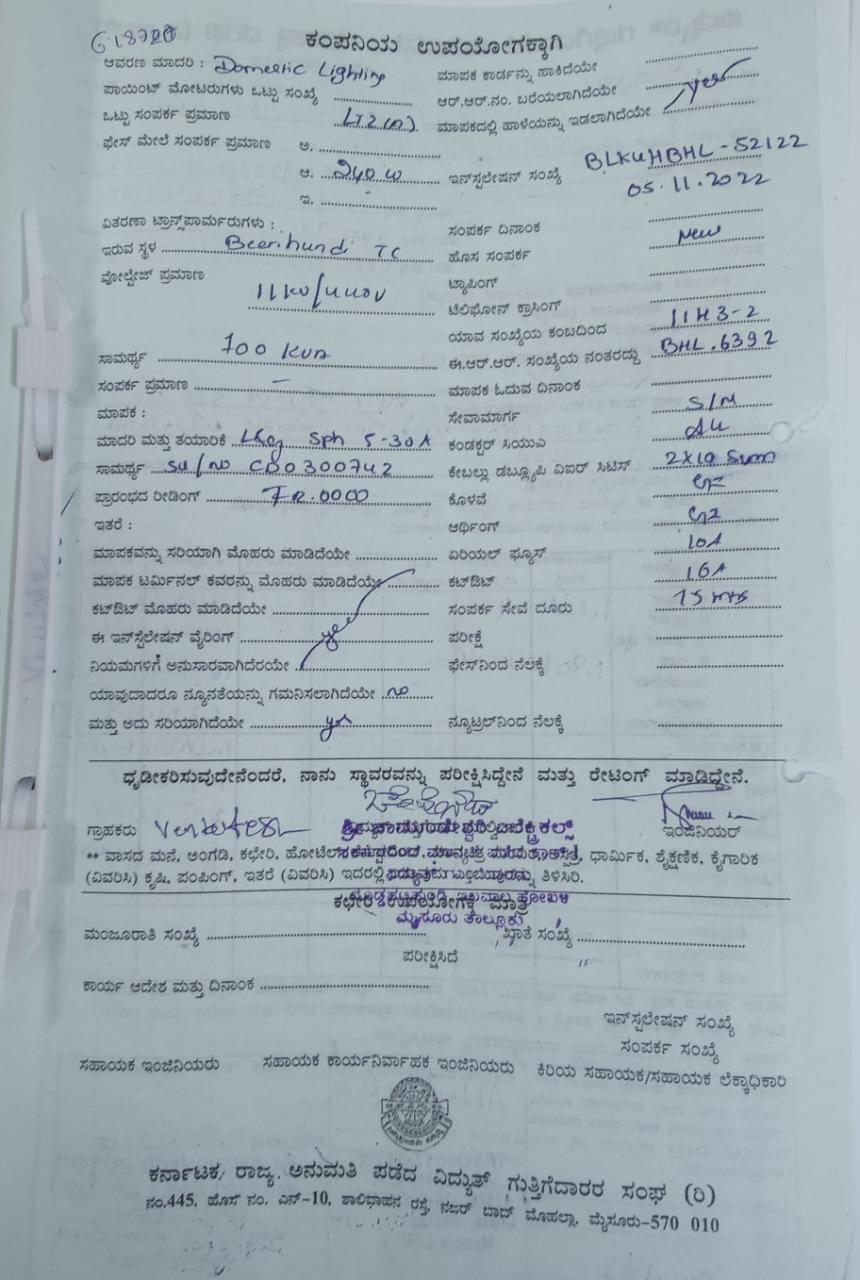 G18720
ಕಂಪನಿಯ ಉಪಯೋಗಕ್ಕಾಗಿ
ಆವರಣ ಮಾದರಿ : Domestic Lighting
ಮಾಪಕ ಕಾರ್ಡನ್ನು ಹಾಕಿದೆಯೇ
ಪಾಯಿಂಟ್ ಮೋಟರುಗಳು ಒಟ್ಟು ಸಂಖ್ಯೆ
ಆರ್.ಆರ್.ನಂ. ಬರೆಯಲಾಗಿದೆಯೇ yes
ಒಟ್ಟು ಸಂಪರ್ಕ ಪ್ರಮಾಣ LT2(a)
ಮಾಪಕದಲ್ಲಿ ಹಾಳೆಯನ್ನು ಇಡಲಾಗಿದೆಯೇ
ಫೇಸ್ ಮೇಲೆ ಸಂಪರ್ಕ ಪ್ರಮಾಣ ಅ.
ಆ. 240 W
ಇನ್‌ಸ್ಟಲೇಷನ್ ಸಂಖ್ಯೆ BLKUHBHL-52122
05.11.2022
ಇ.
ವಿತರಣಾ ಟ್ರಾನ್ಸ್‌ಪಾರ್ಮರುಗಳು :
ಸಂಪರ್ಕ ದಿನಾಂಕ
ಇರುವ ಸ್ಥಳ Beerihundi TC
ಹೊಸ ಸಂಪರ್ಕ New
ವೋಲ್ಟೇಜ್ ಪ್ರಮಾಣ 11KV/440V
ಟ್ಯಾಪಿಂಗ್
ಟೆಲಿಫೋನ್ ಕ್ರಾಸಿಂಗ್
ಯಾವ ಸಂಖ್ಯೆಯ ಕಂಬದಿಂದ 11H3-2
ಸಾಮರ್ಥ್ಯ 100 KVA
ಈ.ಆರ್.ಆರ್. ಸಂಖ್ಯೆಯ ನಂತರದ್ದು BHL.6392
ಸಂಪರ್ಕ ಪ್ರಮಾಣ –
ಮಾಪಕ ಓದುವ ದಿನಾಂಕ
ಮಾಪಕ :
ಸೇವಾಮಾರ್ಗ S/M
ಮಾದರಿ ಮತ್ತು ತಯಾರಿಕೆ Sph 5-30A
ಕಂಡಕ್ಟರ್ ಸಿಯುಎ
ಸಾಮರ್ಥ್ಯ Sl/no CD0300742
ಕೇಬಲ್ಲು ಡಬ್ಲ್ಯೂಪಿ ವಿಐರ್ ಸಿಟಿಸ್ 2X10 Sqmm
ಪ್ರಾರಂಭದ ರೀಡಿಂಗ್ FR.0000
ಕೊಳವೆ GI
ಇತರೆ :
ಆರ್ಥಿಂಗ್ GI
ಮಾಪಕವನ್ನು ಸರಿಯಾಗಿ ಮೊಹರು ಮಾಡಿದೆಯೇ
ಏರಿಯಲ್ ಫ್ಯೂಸ್ 10A
ಮಾಪಕ ಟರ್ಮಿನಲ್ ಕವರನ್ನು ಮೊಹರು ಮಾಡಿದೆಯೇ
ಕಟ್‌ಔಟ್ 16A
ಕಟ್‌ಔಟ್ ಮೊಹರು ಮಾಡಿದೆಯೇ
ಸಂಪರ್ಕ ಸೇವೆ ದೂರು 15 mts
ಈ ಇನ್‌ಸ್ಟಲೇಷನ್ ವೈರಿಂಗ್ yes
ಪರೀಕ್ಷೆ
ನಿಯಮಗಳಿಗೆ ಅನುಸಾರವಾಗಿದೆರಯೇ
ಫೇಸ್‌ನಿಂದ ನೆಲಕ್ಕೆ
ಯಾವುದಾದರೂ ನ್ಯೂನತೆಯನ್ನು ಗಮನಿಸಲಾಗಿದೆಯೇ no
ಮತ್ತು ಅದು ಸರಿಯಾಗಿದೆಯೇ yes
ನ್ಯೂಟ್ರಲ್‌ನಿಂದ ನೆಲಕ್ಕೆ
ಧೃಡೀಕರಿಸುವುದೇನೆಂದರೆ, ನಾನು ಸ್ಥಾವರವನ್ನು ಪರೀಕ್ಷಿಸಿದ್ದೇನೆ ಮತ್ತು ರೇಟಿಂಗ್ ಮಾಡಿದ್ದೇನೆ.
ಗ್ರಾಹಕರು Venkatesh
ಶ್ರೀ ಚಾಮುಂಡೇಶ್ವರಿ ಎಲೆಕ್ಟ್ರಿಕಲ್ಸ್
ಇಂಜಿನಿಯರ್
** ವಾಸದ ಮನೆ, ಅಂಗಡಿ, ಕಛೇರಿ, ಹೋಟೆಲ್ ಧಾರ್ಮಿಕ, ಶೈಕ್ಷಣಿಕ, ಕೈಗಾರಿಕ
(ವಿವರಿಸಿ) ಕೃಷಿ, ಪಂಪಿಂಗ್, ಇತರೆ (ವಿವರಿಸಿ) ಇದರಲ್ಲಿ ತಿಳಿಸಿರಿ.
ಕಛೇರಿ ಉಪಯೋಗಕ್ಕೆ ಮಾತ್ರ
ಮೈಸೂರು ತಾಲ್ಲೂಕು
ಮಂಜೂರಾತಿ ಸಂಖ್ಯೆ
ಖಾತೆ ಸಂಖ್ಯೆ
ಪರೀಕ್ಷಿಸಿದೆ
ಕಾರ್ಯ ಆದೇಶ ಮತ್ತು ದಿನಾಂಕ
ಇನ್‌ಸ್ಟಲೇಷನ್ ಸಂಖ್ಯೆ
ಸಂಪರ್ಕ ಸಂಖ್ಯೆ
ಸಹಾಯಕ ಇಂಜಿನಿಯರು ಸಹಾಯಕ ಕಾರ್ಯನಿರ್ವಾಹಕ ಇಂಜಿನಿಯರು ಕಿರಿಯ ಸಹಾಯಕ/ಸಹಾಯಕ ಲೆಕ್ಕಾಧಿಕಾರಿ
ಕರ್ನಾಟಕ ರಾಜ್ಯ ಅನುಮತಿ ಪಡೆದ ವಿದ್ಯುತ್ ಗುತ್ತಿಗೆದಾರರ ಸಂಘ (ರಿ)
ನಂ.445, ಹೊಸ ನಂ. ಎನ್-10, ಶಾಲಿಧಾಹನ ರಸ್ತೆ, ನಜರ್ ಬಾದ್ ಮೊಹಲ್ಲಾ, ಮೈಸೂರು-570 010